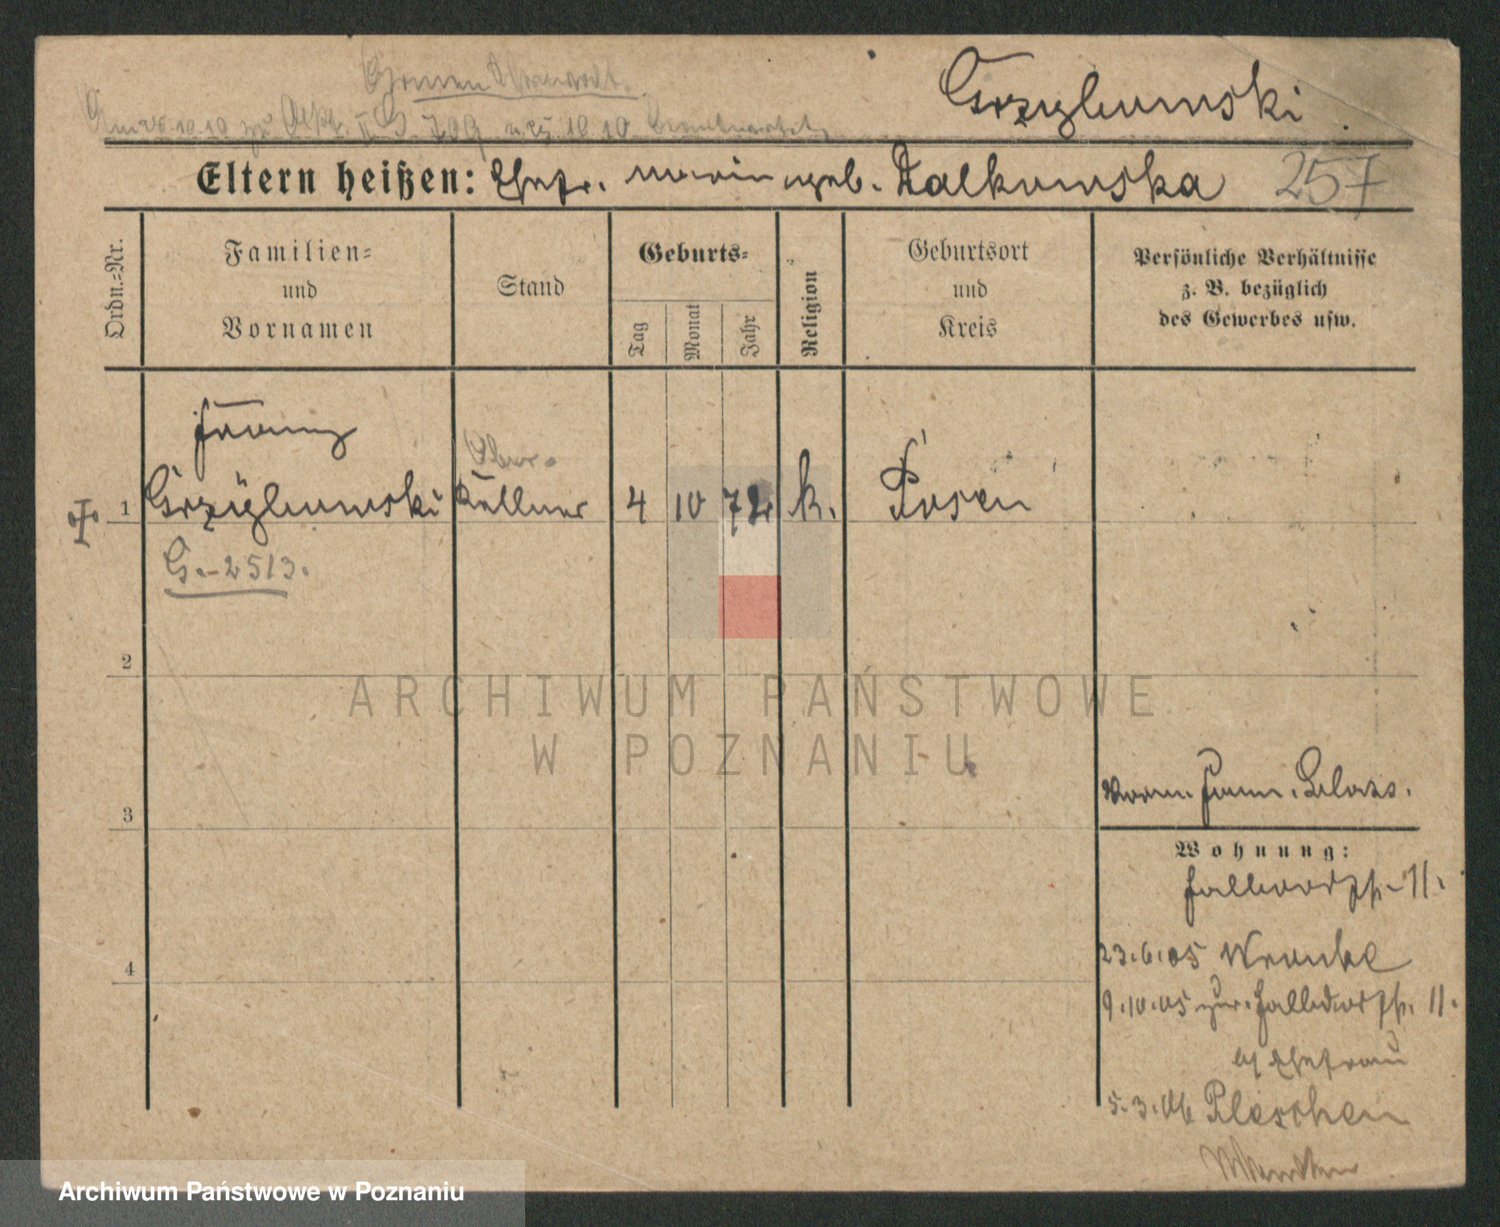 Grzybowski
Eltern heißen: Ehefr. Maria geb. Kalkowska 257
Ordn.-Nr.
Familien-
und
Vornamen
Stand
Geburts-
Tag
Monat
Jahr
Religion
Geburtsort
und
Kreis
Persönliche Verhältnisse
z. B. bezüglich
des Gewerbes usw.
Franz
Ober-
1 Grzybowski Kellner 4 10 72 k. Posen
G.-2513.
2
ARCHIWUM PAŃSTWOWE
W POZNANIU
3
Wohnung:
Halbdorfstr. 11.
23.6.05 Wronke
9.10.05 zur. Halbdorfstr. 11.
b/ Ehefrau
4
5.3.06 Pleschen
Archiwum Państwowe w Poznaniu